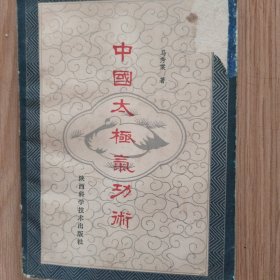 中國太極氣功術
马秀棠 著
陕西科学技术出版社